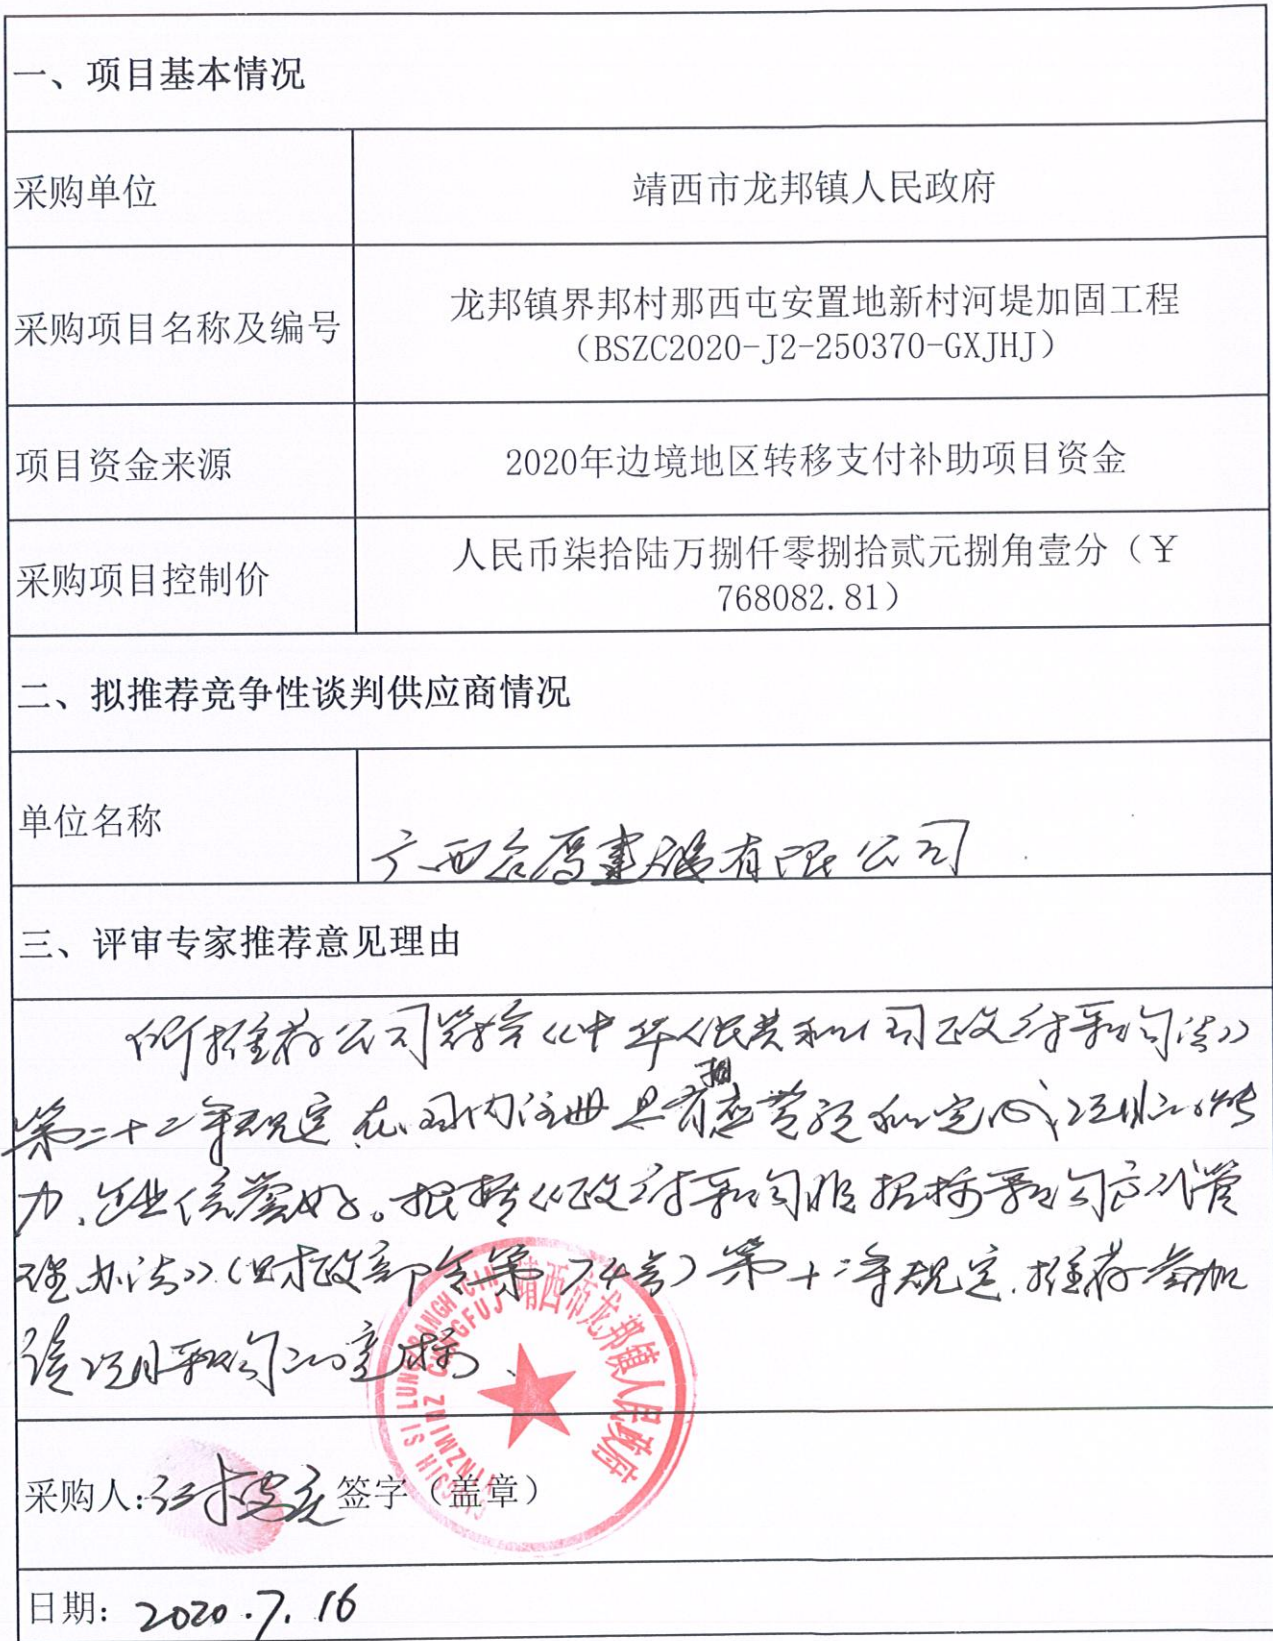 一、项目基本情况
采购单位
靖西市龙邦镇人民政府
采购项目名称及编号
龙邦镇界邦村那西屯安置地新村河堤加固工程
（BSZC2020-J2-250370-GXJHJ）
项目资金来源
2020年边境地区转移支付补助项目资金
采购项目控制价
人民币柒拾陆万捌仟零捌拾贰元捌角壹分（￥
768082.81）
二、拟推荐竞争性谈判供应商情况
单位名称
广西合厚建设有限公司
三、评审专家推荐意见理由
所推荐公司符合《中华人民共和国政府采购法》
第二十二条规定，在国内注册具有相应资质和完成项目的能
力，企业信誉好。根据《政府采购非招标采购方式管
理办法》（财政部令第74号）第十二条规定，推荐参加
该项目采购的竞标、
靖西市龙邦镇人民政府
采购人: 签字（盖章）
日期: 2020.7.16